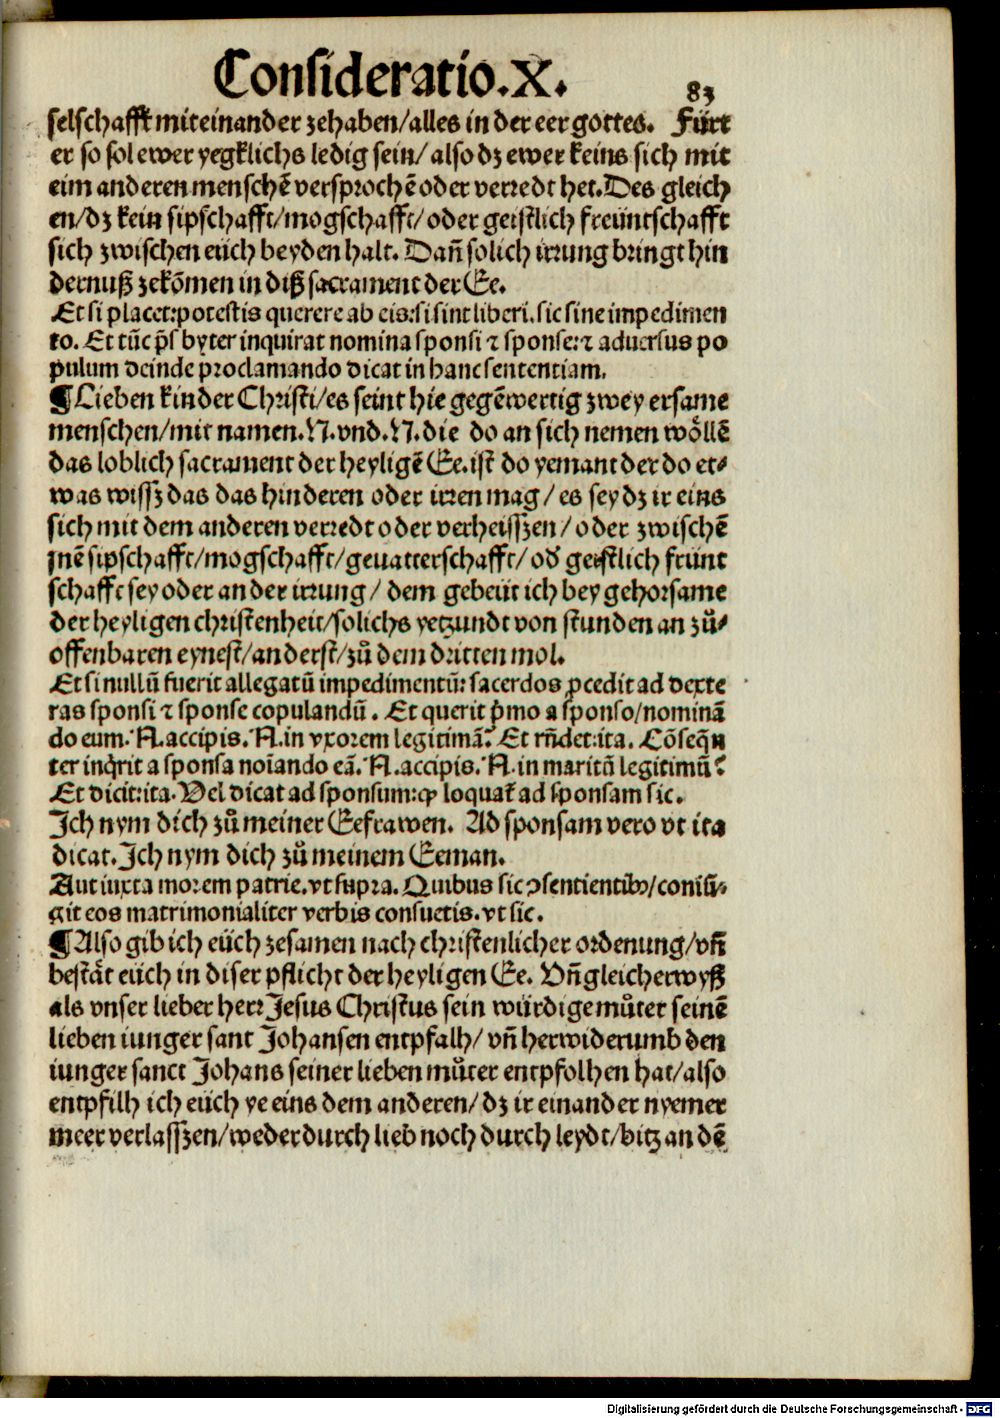 Consideratio.X.
83
selschafft miteinander zehaben/alles in der eer gottes. Fürt
er so sol ewer yegklichs ledig sein/also dz ewer keins sich mit
eim anderen menschē versprochē oder verredt het. Des gleich
en/dz kein sipschafft/mogschafft/oder geistlich freüntschafft
sich zwischen eüch beyden halt. Dañ solich irrung bringt hin
dernuß zekōmen in diß sacrament der Ee.
Et si placet:potestis querere ab eis:si sint liberi.sic sine impedimen
to. Et tūc p̄sbyter inquirat nomina sponsi ⁊ sponse:⁊ aduersus po
pulum deinde proclamando dicat in hanc sententiam.
¶Lieben kinder Christi/es seint hie gegēwertig zwey ersame
menschen/mit namen.N.vnd.N.die do an sich nemen wöllē
das loblich sacrament der heyligē Ee.ist do yemant der do et⸗
was wissz das das hinderen oder irren mag/es sey dz ir eins
sich mit dem anderen verredt oder verheisszen/oder zwischē
jnē sipschafft/mogschafft/geuatterschafft/od̓ geistlich früntt
schafft sey oder ander irrung/dem gebeüt ich bey gehorsame
der heyligen christenheit/solichs yetzundt von stunden an zů⸗
offenbaren eynest/anderst/zů dem dritten mol.
Et si nullū fuerit allegatū impedimentū: sacerdos ꝓcedit ad dexte
ras sponsi ⁊ sponse copulandū. Et querit p̓mo a sponso/nominā
do eum.N.accipis.N.in vxorem legitimā? Et rn̄det:ita. Cōseq̄n
ter inq̓rit a sponsa noīando eā.N.accipis.N.in maritū legitimū?
Et dicit:ita. Vel dicat ad sponsum:ꝙ loquat̄ ad sponsam sic.
Ich nym dich zů meiner Eefrawen. Ad sponsam vero vt ita
dicat. Ich nym dich zů meinem Eeman.
Aut iuxta morem patrie.vt supra. Quibus sic ꝯsentientibꝰ/coniū⸗
git eos matrimonialiter verbis consuetis.vt sic.
¶Also gib ich eüch zesamen nach christenlicher ordenung/vñ
bestät eüch in diser pflicht der heyligen Ee. Vñ gleicherwyß
als vnser lieber herr Jesus Christus sein würdige můter seinē
lieben iunger sant Johansen entpfalh/vñ herwiderumb den
iunger sanct Johans seiner lieben můter entpfolhen hat/also
entpfilh ich eüch ye eins dem anderen/dz ir einander nyemer
meer verlasszen/weder durch lieb noch durch leydt/bitz an dē
Digitalisierung gefördert durch die Deutsche Forschungsgemeinschaft - DFG